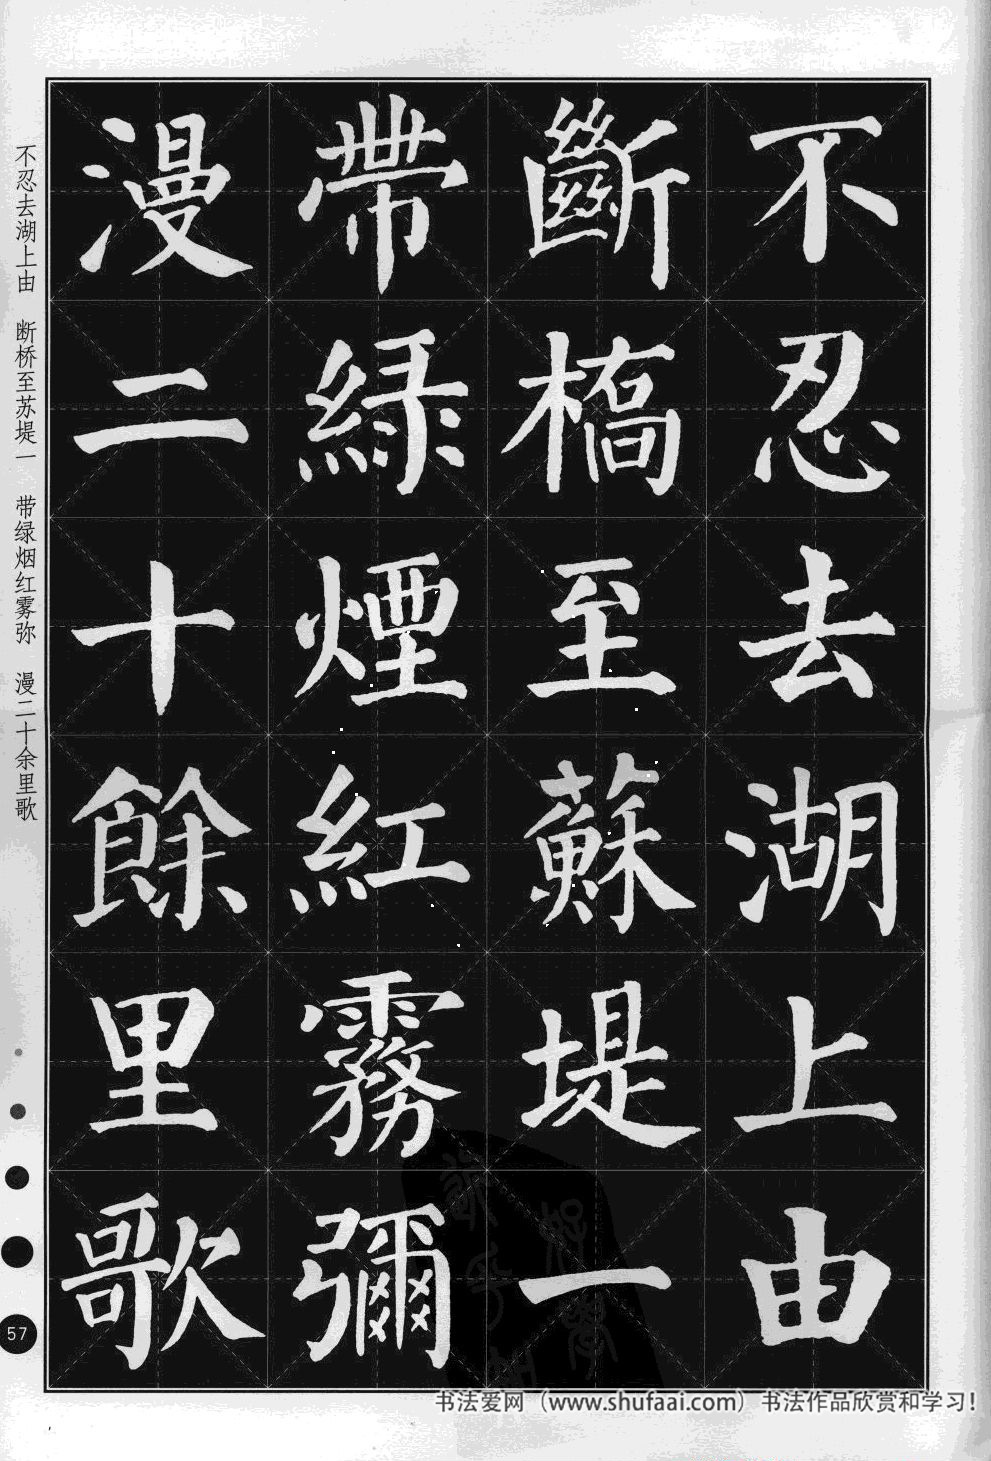 不忍去湖上由
斷橋至蘇堤一
帶綠煙紅霧彌
漫二十餘里歌
不忍去湖上由 断桥至苏堤一 带绿烟红雾弥 漫二十余里歌
57
书法爱网（www.shufaai.com）书法作品欣赏和学习！